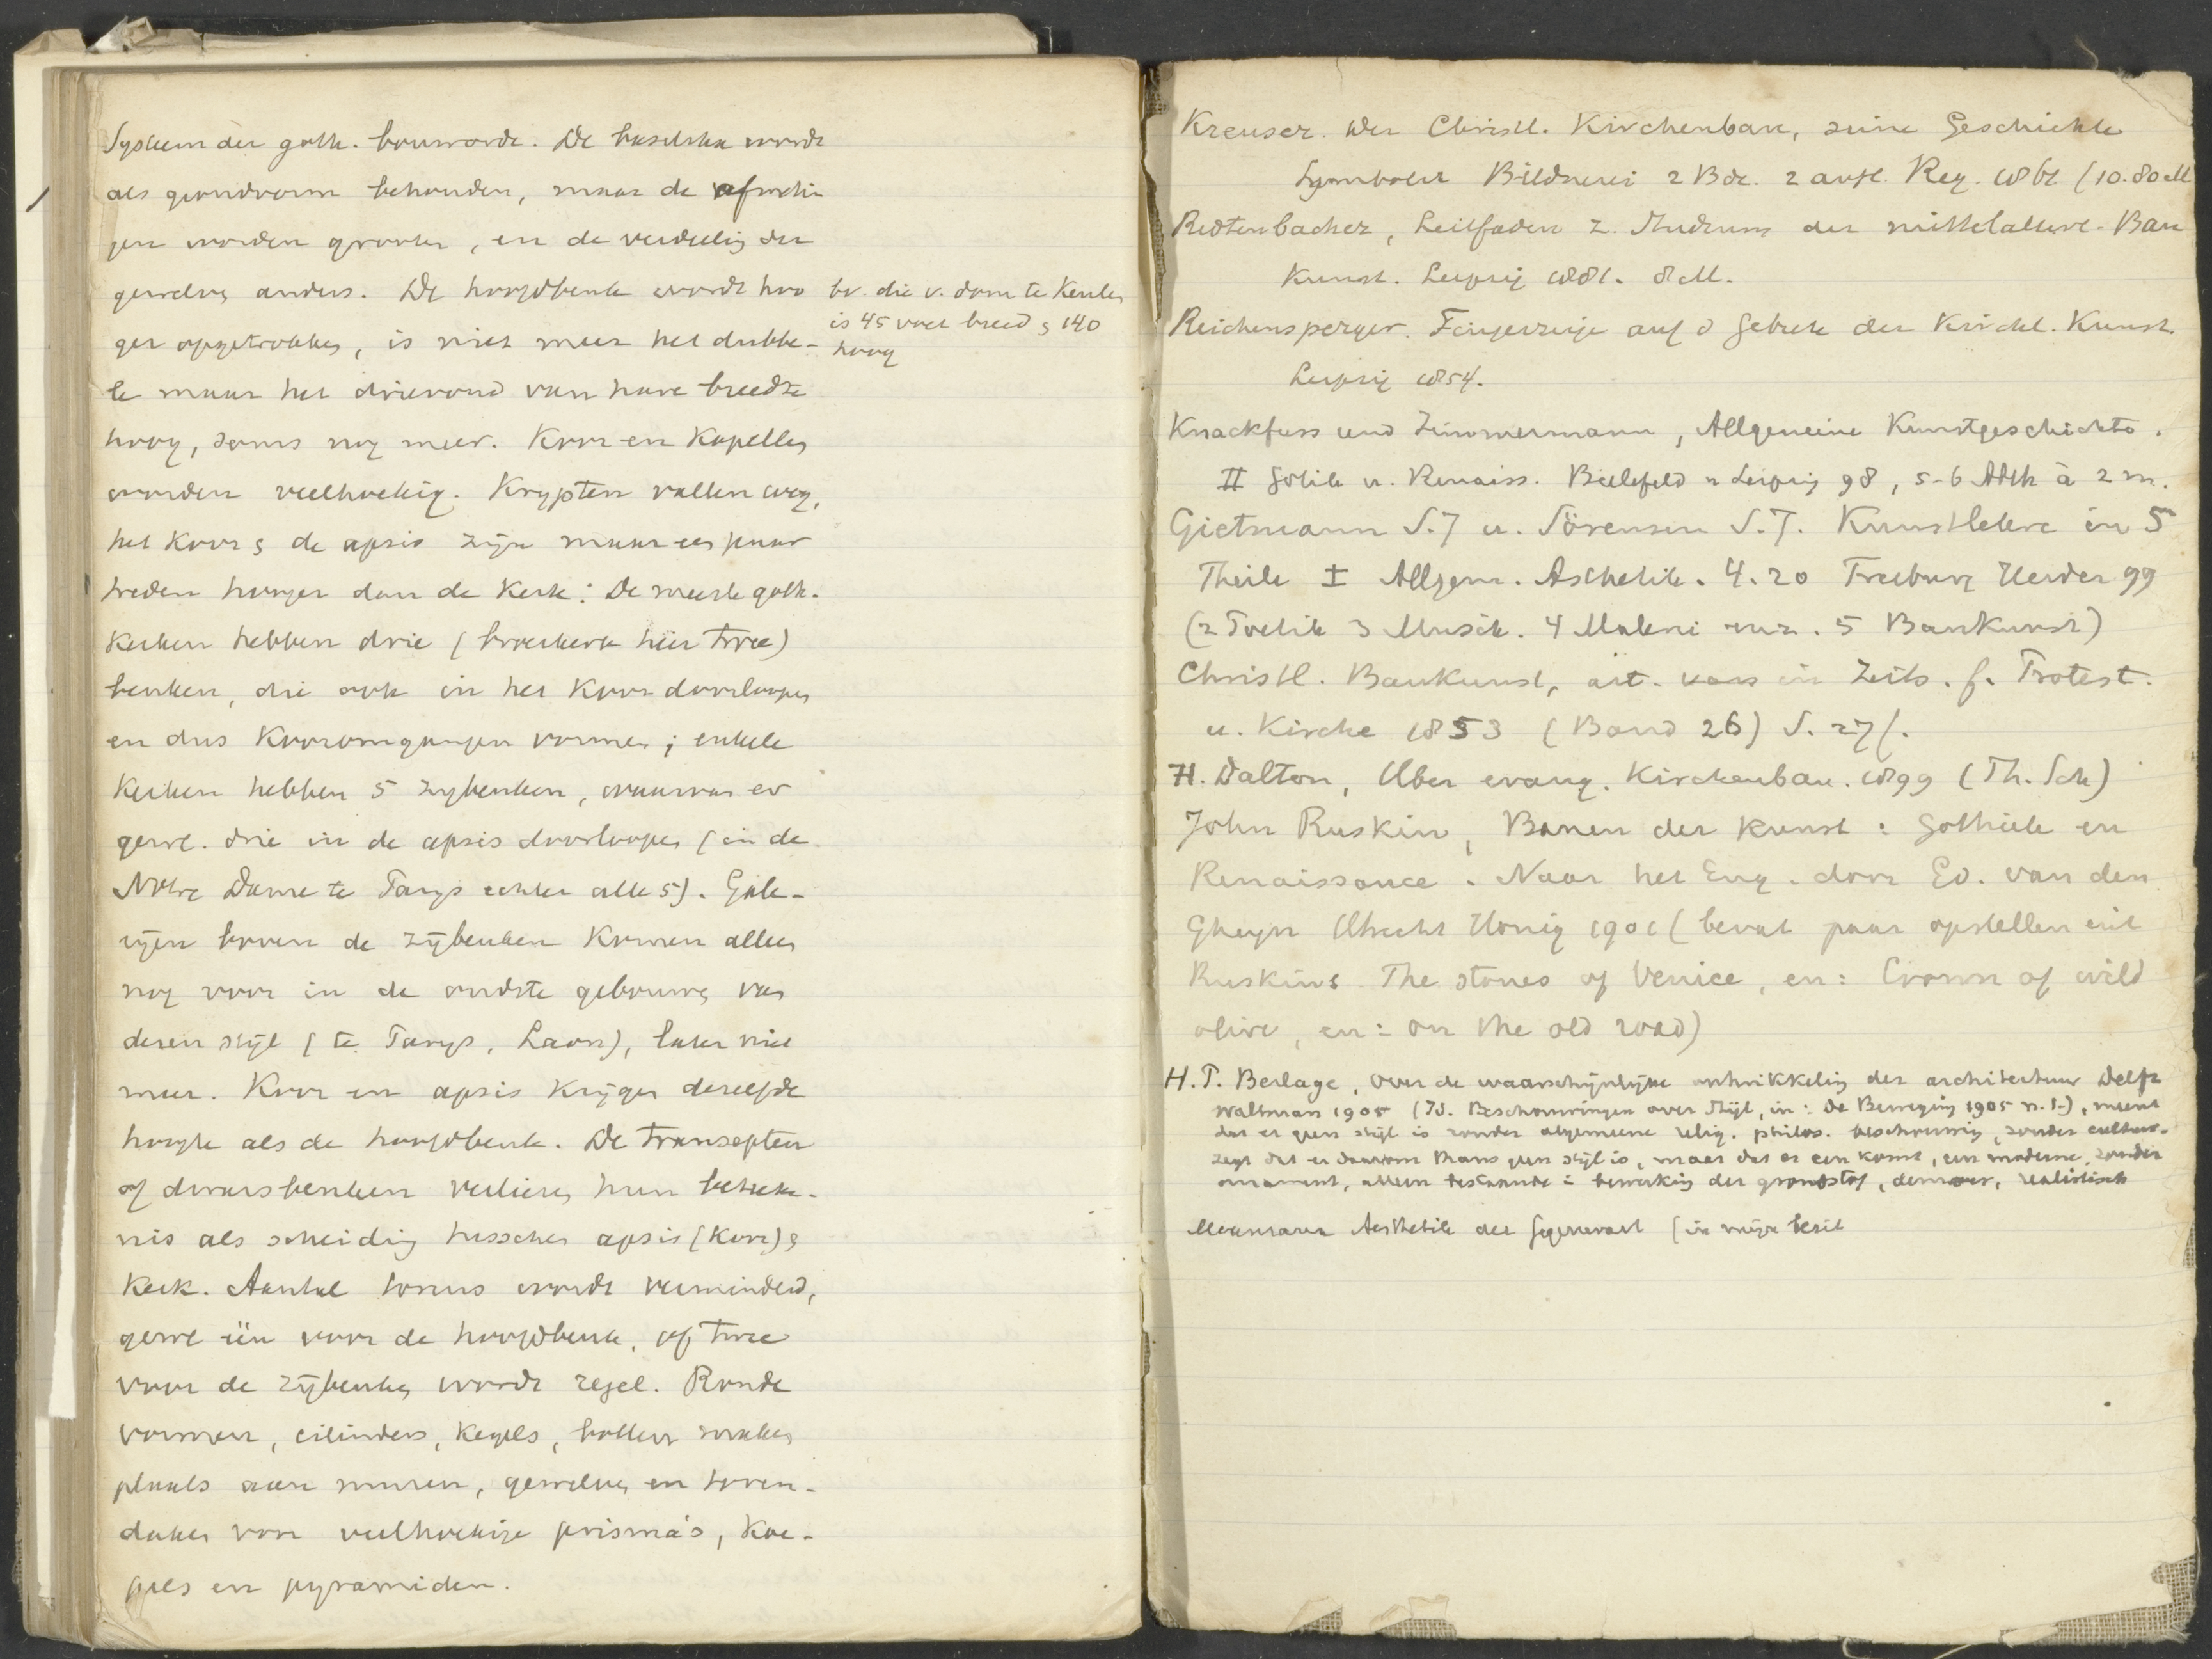 Systeem der goth. bouworde. De basilika wordt
als grondvorm behouden, maar de afmetin
gen worden grooter, en de verdeeling der
gewelven anders. De hoofdbeuk wordt hoo
ger opgetrokken, is niet meer het dubbe-
le maar het drievoud van hare breedte
hoog, soms nog meer. Koor en Kapellen
worden veelhoekig. Krypten vallen weg,
het Koor & de apsis zijn maar een paar
treden hooger dan de Kerk: De meeste goth.
Kerken hebben drie ( hier twee)
beuken, die ook in het Koor doorloopen
en dus Kooromgangen vormen; enkele
Kerken hebben 5 zijbeuken, waarvan er
gewl. drie in de apsis doorloopen (in de
Notre Dame te Parijs echter alle 5). Gale-
rijen boven de zijbeuken Komen alleen
nog voor in de oudste gebouwen van
dezen stijl (te Parijs, Laon), later niet
meer. Koor en apsis Krijgen dezelfde
hoogte als de hoofdbeuk. De transepten
of dwarsbeuken verliezen hun beteeke-
nis als scheiding tusschen apsis (Koor) &
Kerk. Aantal torens wordt verminderd,
gewl één voor de hoofdbeuk, of twee
voor de zijbeuken wordt regel. Ronde
vormen, cilinders, Kegels, bollen maken
plaats aan muren, gewelven en toren-
daken voor veelhoekige prisma's, Koe-
pels en pyramiden.
bv. die v. dom te Keulen
is 45 voet breed & 140
hoog
Kreuser. Der Christl. Kirchenbau, seine Geschichte
Symbolik Bildnerei 2 Bde. 2 aufl. Reg. 1861 (10.80 M
Redtenbacher, Leitfaden z. Studium der mittelalterl. Bau
Kunst. Leipzig 1881. 8 M.
Reichensperger. Fingerzeige auf d Gebiete der Kirchl. Kunst.
Leipzig 1854.
Knackfuss und Zimmermann, Allgemeine Kunstgeschichte.
II Gotik u. Renaiss. Bielefeld u Leipzig 98, 5-6 Abth à 2 m.
Gietmann S.J u. Sörensen S.J. Kunstlehre in 5
Theile I Allgem. Aesthetik. 4.20 Freiburg Herder 99
(2 Poetik 3 Musik. 4 Malerei enz. 5 Baukunst)
Christl. Baukunst, art. in Zeits. f. Protest.
u. Kirche 1853 (Band 26) S. 27/.
H. Dalton, Uber evang. Kirchenbau. 1899 (Th. Sch)
John Ruskin, Banen der Kunst: Gothiek en
Renaissance. Naar het Eng. door Ed. van den
Gheyn Utrecht Honig 1901 (bevat paar opstellen uit
Ruskins The stones of Venice, en: Crown of wild
olive, en: on the old road)
H. P. Berlage, Over de waarschijnlijke ontwikkeling der architectuur Delft
Waltman 1905 (Id. Beschouwingen over Stijl, in: De Beweging 1905 n. 1-), meent
dat er geen stijl is zonder algemeene relig. philos. beschouwing, zonder cultuur.
zegt dat er daarom thans geen stijl is, maar dat er een komt, een moderne, zonder
ornament, alleen bestaande i: bewerking der grondstof, , realistisch
Meumann Aesthetik der Gegenwart (in mijn bezit